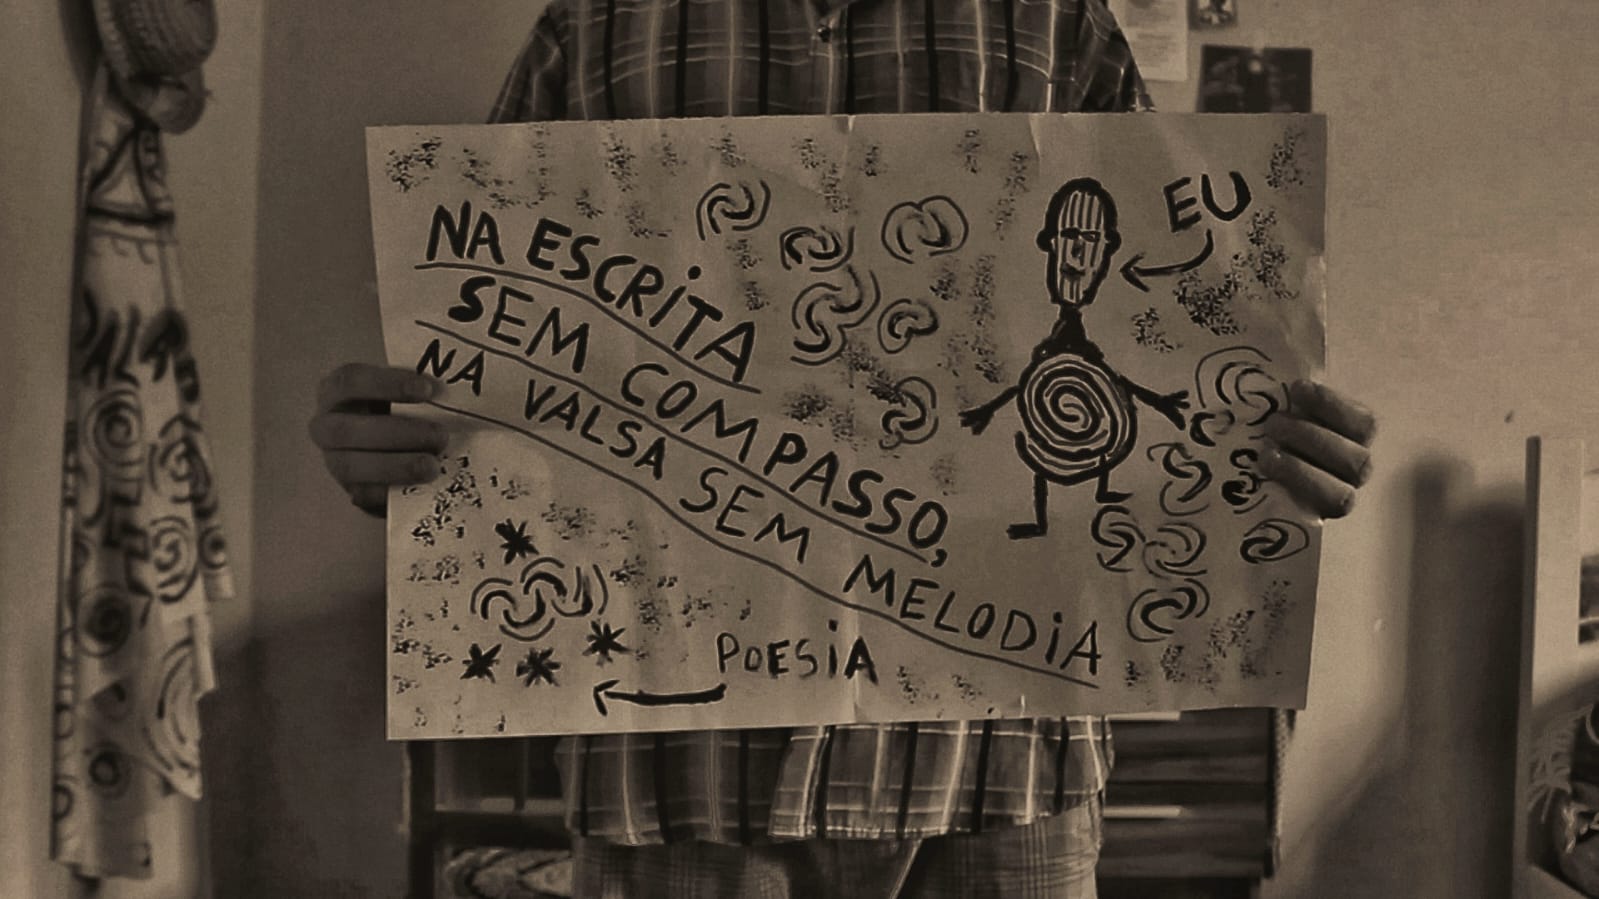 NA ESCRITA
SEM COMPASSO,
NA VALSA SEM MELODIA
EU
POESIA